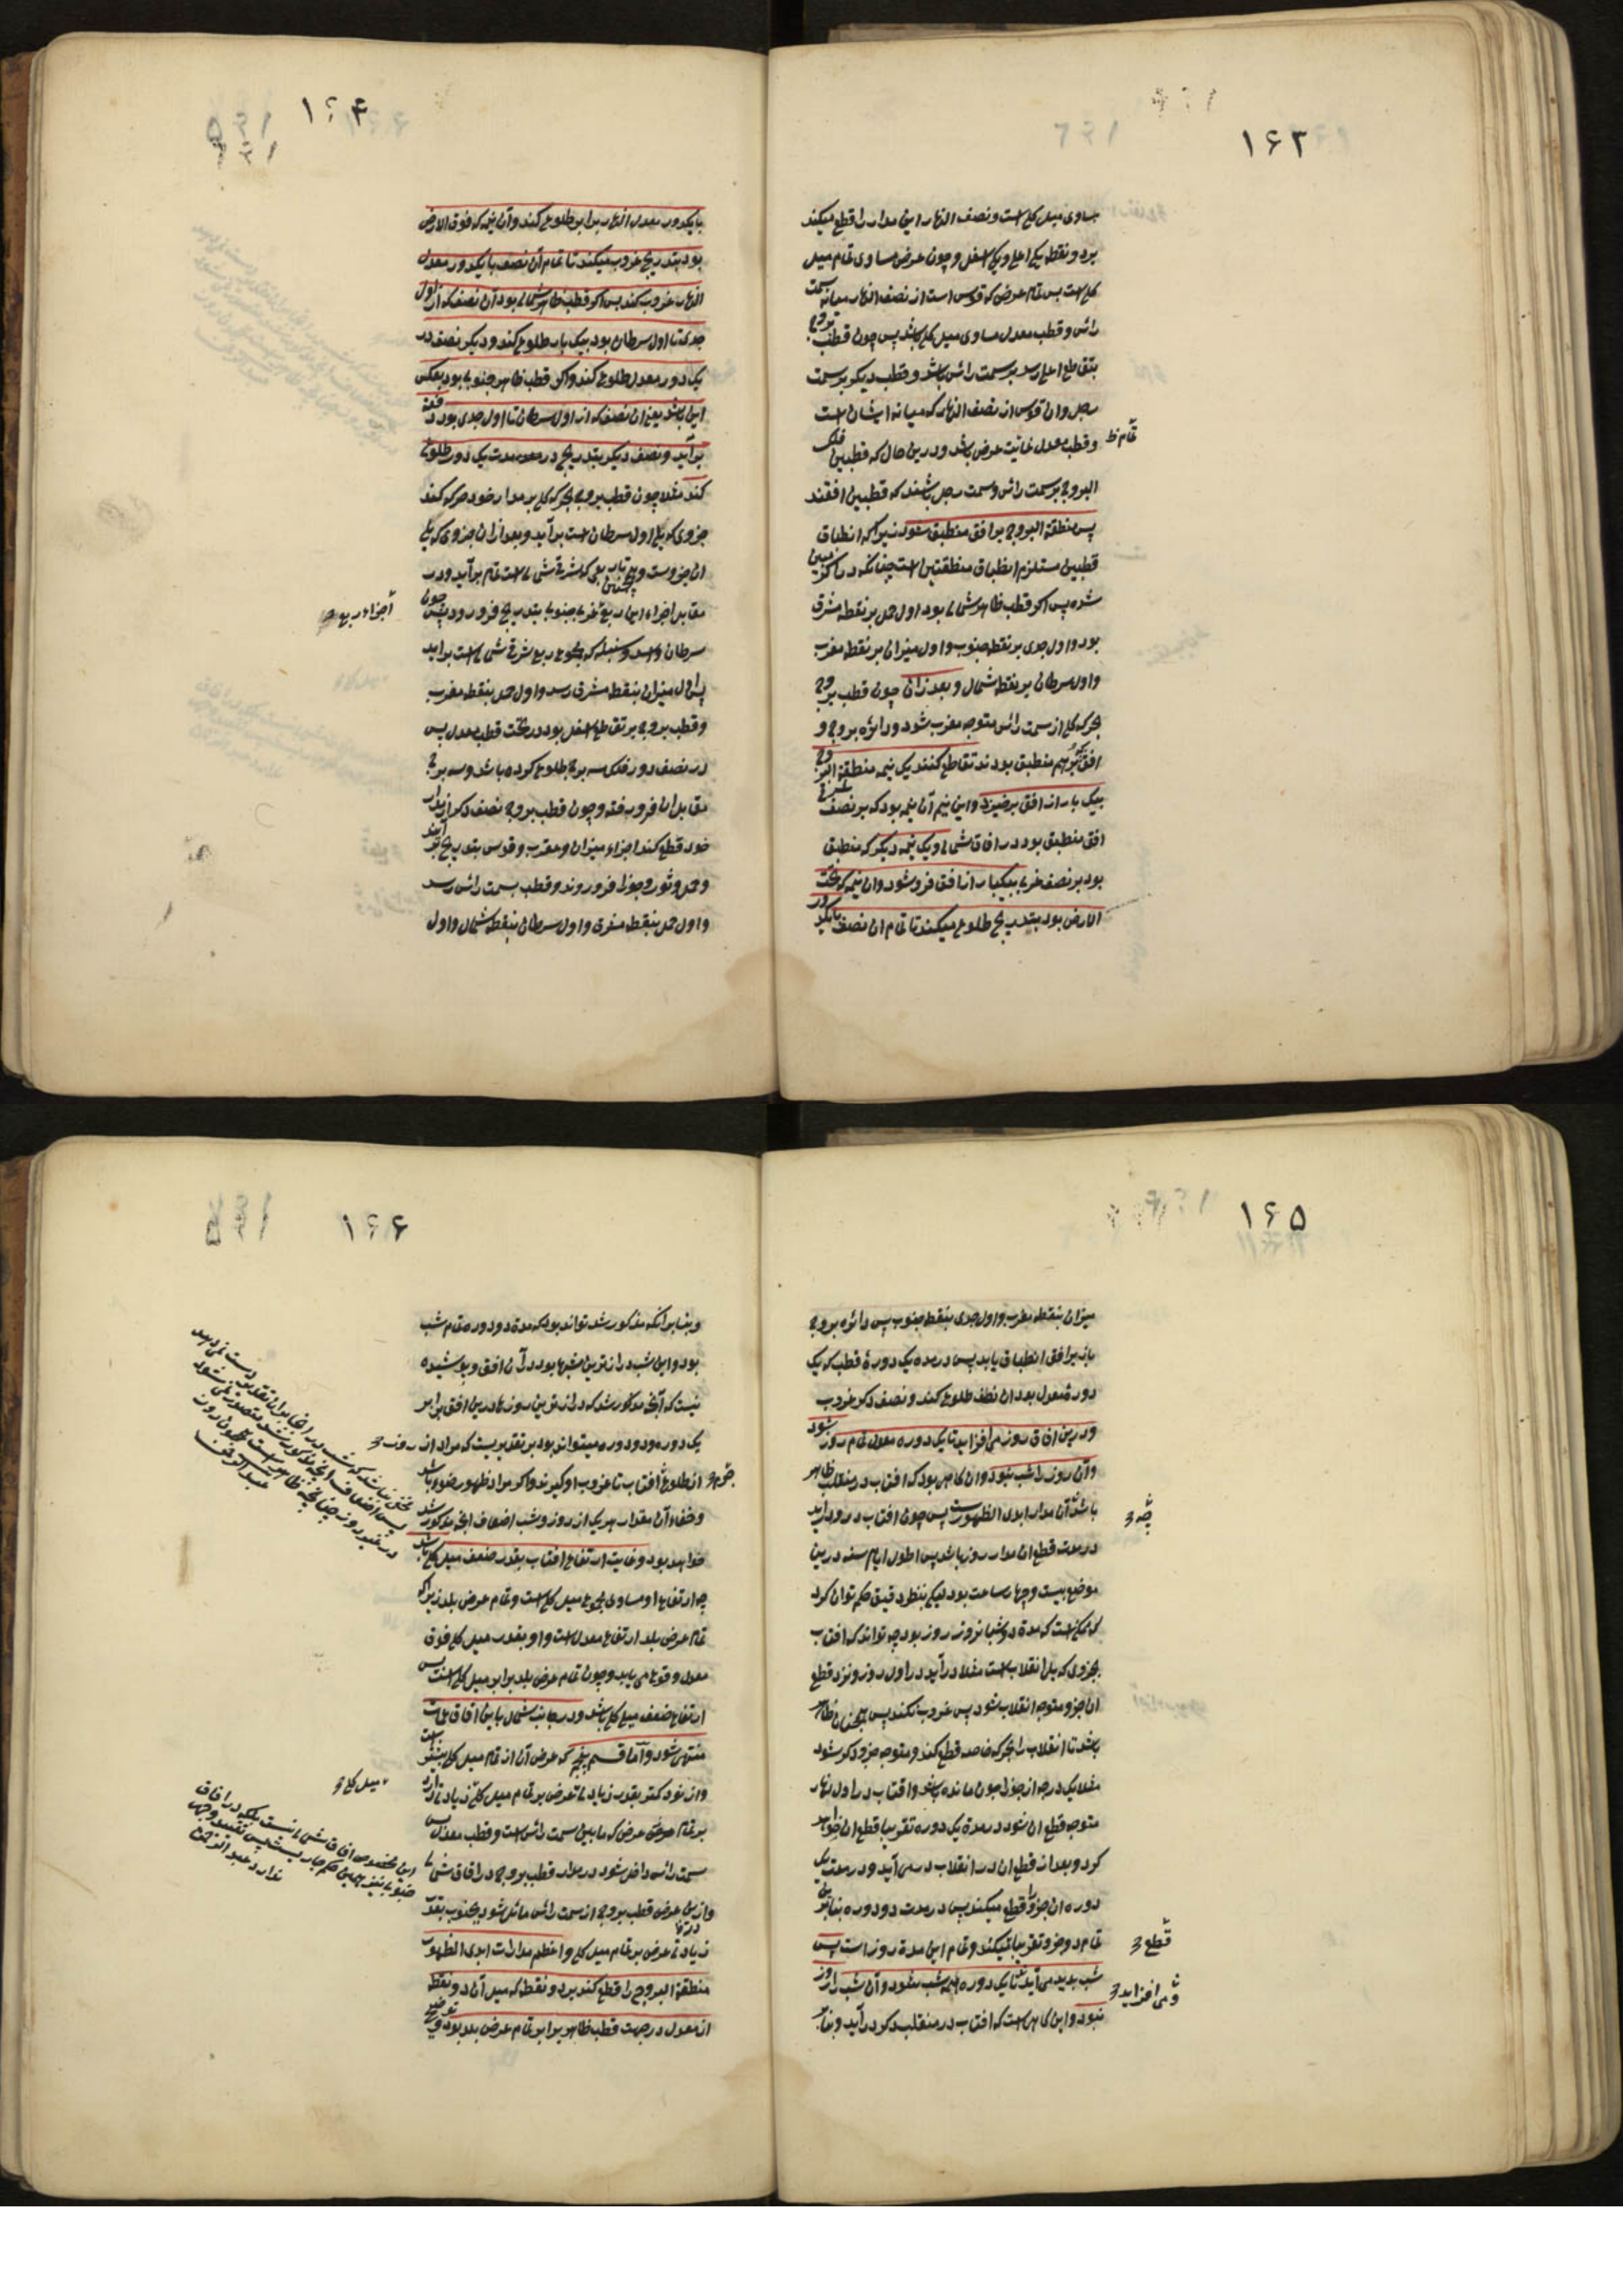 ۱۶۳
مساوی میل کلی است و نصف النهار این مدار را قطع میکند
بر دو نقطه یکی اعلی و یکی اسفل و چون عرض مساوی تمام میل
کلی است پس تمام عرض که قوس است از نصف النهار میانه سمت
راس و قطب معدل مساوی میل کلی باشد پس چون قطب بروج
بتقاطع اعلی رسد بر سمت راس باشد و قطب دیگر بر سمت
رجل و ان قوس از نصف النهار که میانه ایشان است
تمام
و قطب معدل غایت عرض باشد و درین حال که قطبین فلک
البروج بر سمت راس و سمت رجل باشند که قطبین افقند
پس منطقة البروج بر افق منطبق شود زیرا که انطباق
قطبین مستلزم انطباق منطقتین است چنانکه در اکر مبین
شده پس اگر قطب ظاهر شمالی بود اول حمل بر نقطه مشرق
بود و اول جدی بر نقطه جنوب و اول میزان بر نقطه مغرب
و اول سرطان بر نقطه شمال و بعد ازان چون قطب بروج
بحرکه کل از سمت راس متوجه مغرب شود و دائره بروج و
افق که بر هم منطبق بودند تقاطع کنند یک نیمه منطقة البروج
بیک بار از افق برخیزد و این نیم آن نیمه بود که بر نصف شرقی
افق منطبق بود در افاق شمالی و یک نیمه دیگر که منطبق
بود بر نصف غربی بیکبار از افق فرو شود و ان نیمه که تحت
الارض بود بتدریج طلوع میکند تا تمام ان نصف بایکدور
۱۶۴
بایکدور معدل النهار برابر طلوع کند و آن نیمه که فوق الارض
بود بتدریج غروب میکند تا تمام آن نصف بایکدور معدل
النهار غروب کند پس اگر قطب ظاهر شمالی بود آن نصف که از اول
جدی تا اول سرطان بود بیک بار طلوع کند و دیگر نصف در
یک دور معدل طلوع کند و اگر قطب ظاهر جنوبی بود بعکس
این باشد یعنی ان نصف که از اول سرطان تا اول جدی بود دفعة
برآید و نصف دیگر بتدریج در مدت یک دور طلوع
کند مثلا چون قطب بروج بحرکه کل بر مدار خود حرکه کند
جزوی که یلی اول سرطان است برآید و بعد ازان جزوی که یلی
ان جزوست و همچنین تا ربعی که شرقی شمالی است تمام برآید و در
مقابل اجزاء این ربع غربی جنوبی بتدریج فرو رود پس چون
اجزاء ربع
سرطان و اسد و سنبله که مجموع ربع شرقی شمالی است برآید
اول میزان بنقطه مشرق رسد و اول حمل بنقطه مغرب
و قطب بروج بر تقاطع اسفل بود در تحت قطب معدل پس
در نصف دور فلک سه برج طلوع کرده باشد و سه برج
مقابل ان فرو رفته و چون قطب بروج نصف دکر از مدار
خود قطع کند اجزاء میزان و عقرب و قوس بتدریج بر آیند
و حمل و ثور و جوزا فرو روند و قطب بسمت راس رسد
و اول حمل بنقطه مشرق و اول سرطان بنقطه شمال و اول
۱۶۵
میزان بنقطه مغرب و اول جدی بنقطه جنوب پس دائره بروج
باز بر افق انطباق یابد پس در مده یک دورهٔ قطب که یک
دوره معدل بود ان نصف طلوع کند و نصف دکر غروب
و درین افاق روز می افزاید تا یک دوره معدل تمام روز شود
و آن روز را شب نبود و ان کاهی بود که افتاب در منقلب ظاهر
باشد آن مدار ابدی الظهورست پس چون افتاب درو درآید
چه
در مدت قطع ان مدار روز باشد پس اطول ایام سنه درین
موضع بیست و چهار ساعت بود لیکن بنظر دقیق حکم توان کرد
که ممکن است که مدة دو شبانروز روز بود چه تواند که افتاب
بجزوی که یلی انقلاب است مثلا درآید در اول روز و نزد قطع
ان جزو متوجه انقلاب شود پس غروب نکند پس همچنان ظاهر
باشد تا انقلاب را بحرکه خاصه قطع کند و متوجه جزو دکر شود
مثلا یک درجه از جوزا چون مانده باشد و افتاب در اول نهار
متوجه قطع ان شود در مدة یک دوره تقریبا قطع ان خواهد
کرد و بعد از قطع ان در انقلاب در می آید و در مدت یک
دوره ان جزو را قطع میکند پس در مدت دو دوره بنا برین
تمام دو جزو تقریبا میکند و تمام این مدة روز است پس
قطع
شب بدید می آید تا یک دوره همه شب شود و آن شب را روز
و می افزاید
نبود و این کاهی است که افتاب در منقلب دکر درآید و بنا بر
۱۶۶
و بنا بر آنکه مذکور شد تواند بود که مدة دو دوره تمام شب
بود و این شب درازترین شبها بود در آن افق و پوشیده
نیست که آنچه مذکور شد که درازترین روزها درین افق برابر
یک دوره و دو دوره میتواند بود بر تقدیریست که مراد از روز
از طلوع افتاب تا غروب او گیرند و اکر مراد ظهور ضوء باشد
جرم
و خفاء آن مقدار هر یک از روز و شب اضعاف انچه مذکور شد
خواهد بود و غایت ارتفاع افتاب بقدر ضعف میل کلی باشد
چه ارتفاع او مساوی مجموع میل کلی است و تمام عرض بلد زیرا که
تمام عرض بلد ارتفاع معدل است و او بقدر میل کلی فوق
معدل وقوع می یابد و چون تمام عرض بلد برابر میل کلی است پس
ارتفاع ضعف میل کلی باشد و در جانب شمال باین افاق عمارت
منتهی شود و اما قسم پنجم که عرض آن از تمام میل کلی بیشتر است
و از نود کمتر بقدر زیادتی عرض بر تمام میل کلی زیادتی دارد
میل کلی
بر تمام عرض که ما بین سمت راس است و قطب معدل پس
سمت راس داخل شود در مدار قطب بروج در افاق شمالی
و ازین عرض قطب بروج از سمت راس مائل شود بجنوب بقدر
زیادتی عرض بر تمام میل کلی و اعظم مدارات ابدی الظهور
منطقة البروج را قطع کند بر دو نقطه که میل آن دو نقطه
از معدل در جهت قطب ظاهر برابر تمام عرض بلد بود
این مخصوص افاق شمالی نیست بلکه در افاق
جنوبی نیز همین حکم جاریست پس تقیید وجهی
ندارد